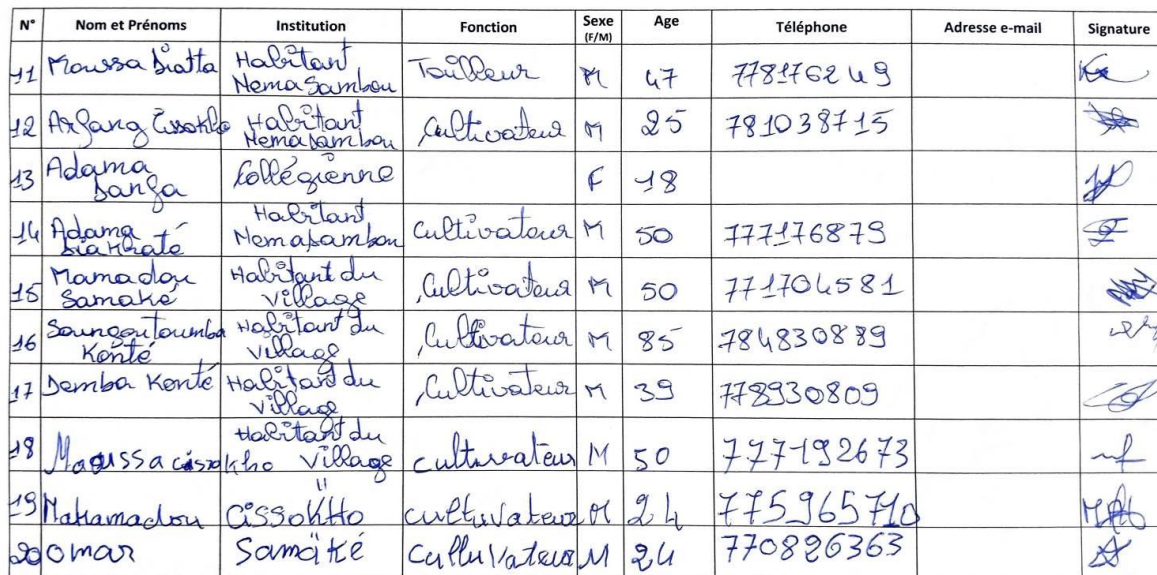 N° Nom et Prénoms Institution Fonction Sexe (F/M) Age Téléphone Adresse e-mail Signature
11 Moussa Diatta Habitant Nema Sambou Tailleur M 47 778176249
12 Arfang Cissokho Habitant Nemasambou Cultivateur M 25 781038715
13 Adama Danfa Collégienne F 18
14 Adama Diakhaté Habitant Nemasambou Cultivateur M 50 777176879
15 Mamadou Samaké Habitant du village Cultivateur M 50 771704581
16 Soungoutoumba Konté Habitant du village Cultivateur M 85 784830889
17 Demba Konté Habitant du village Cultivateur M 39 778930809
18 Moussa cissokho Habitant du village cultuvateur M 50 777192673
19 Mahamadou Cissokho " cultuvateur M 24 775965710
20 Omar Samaké culluvateur M 24 770826363